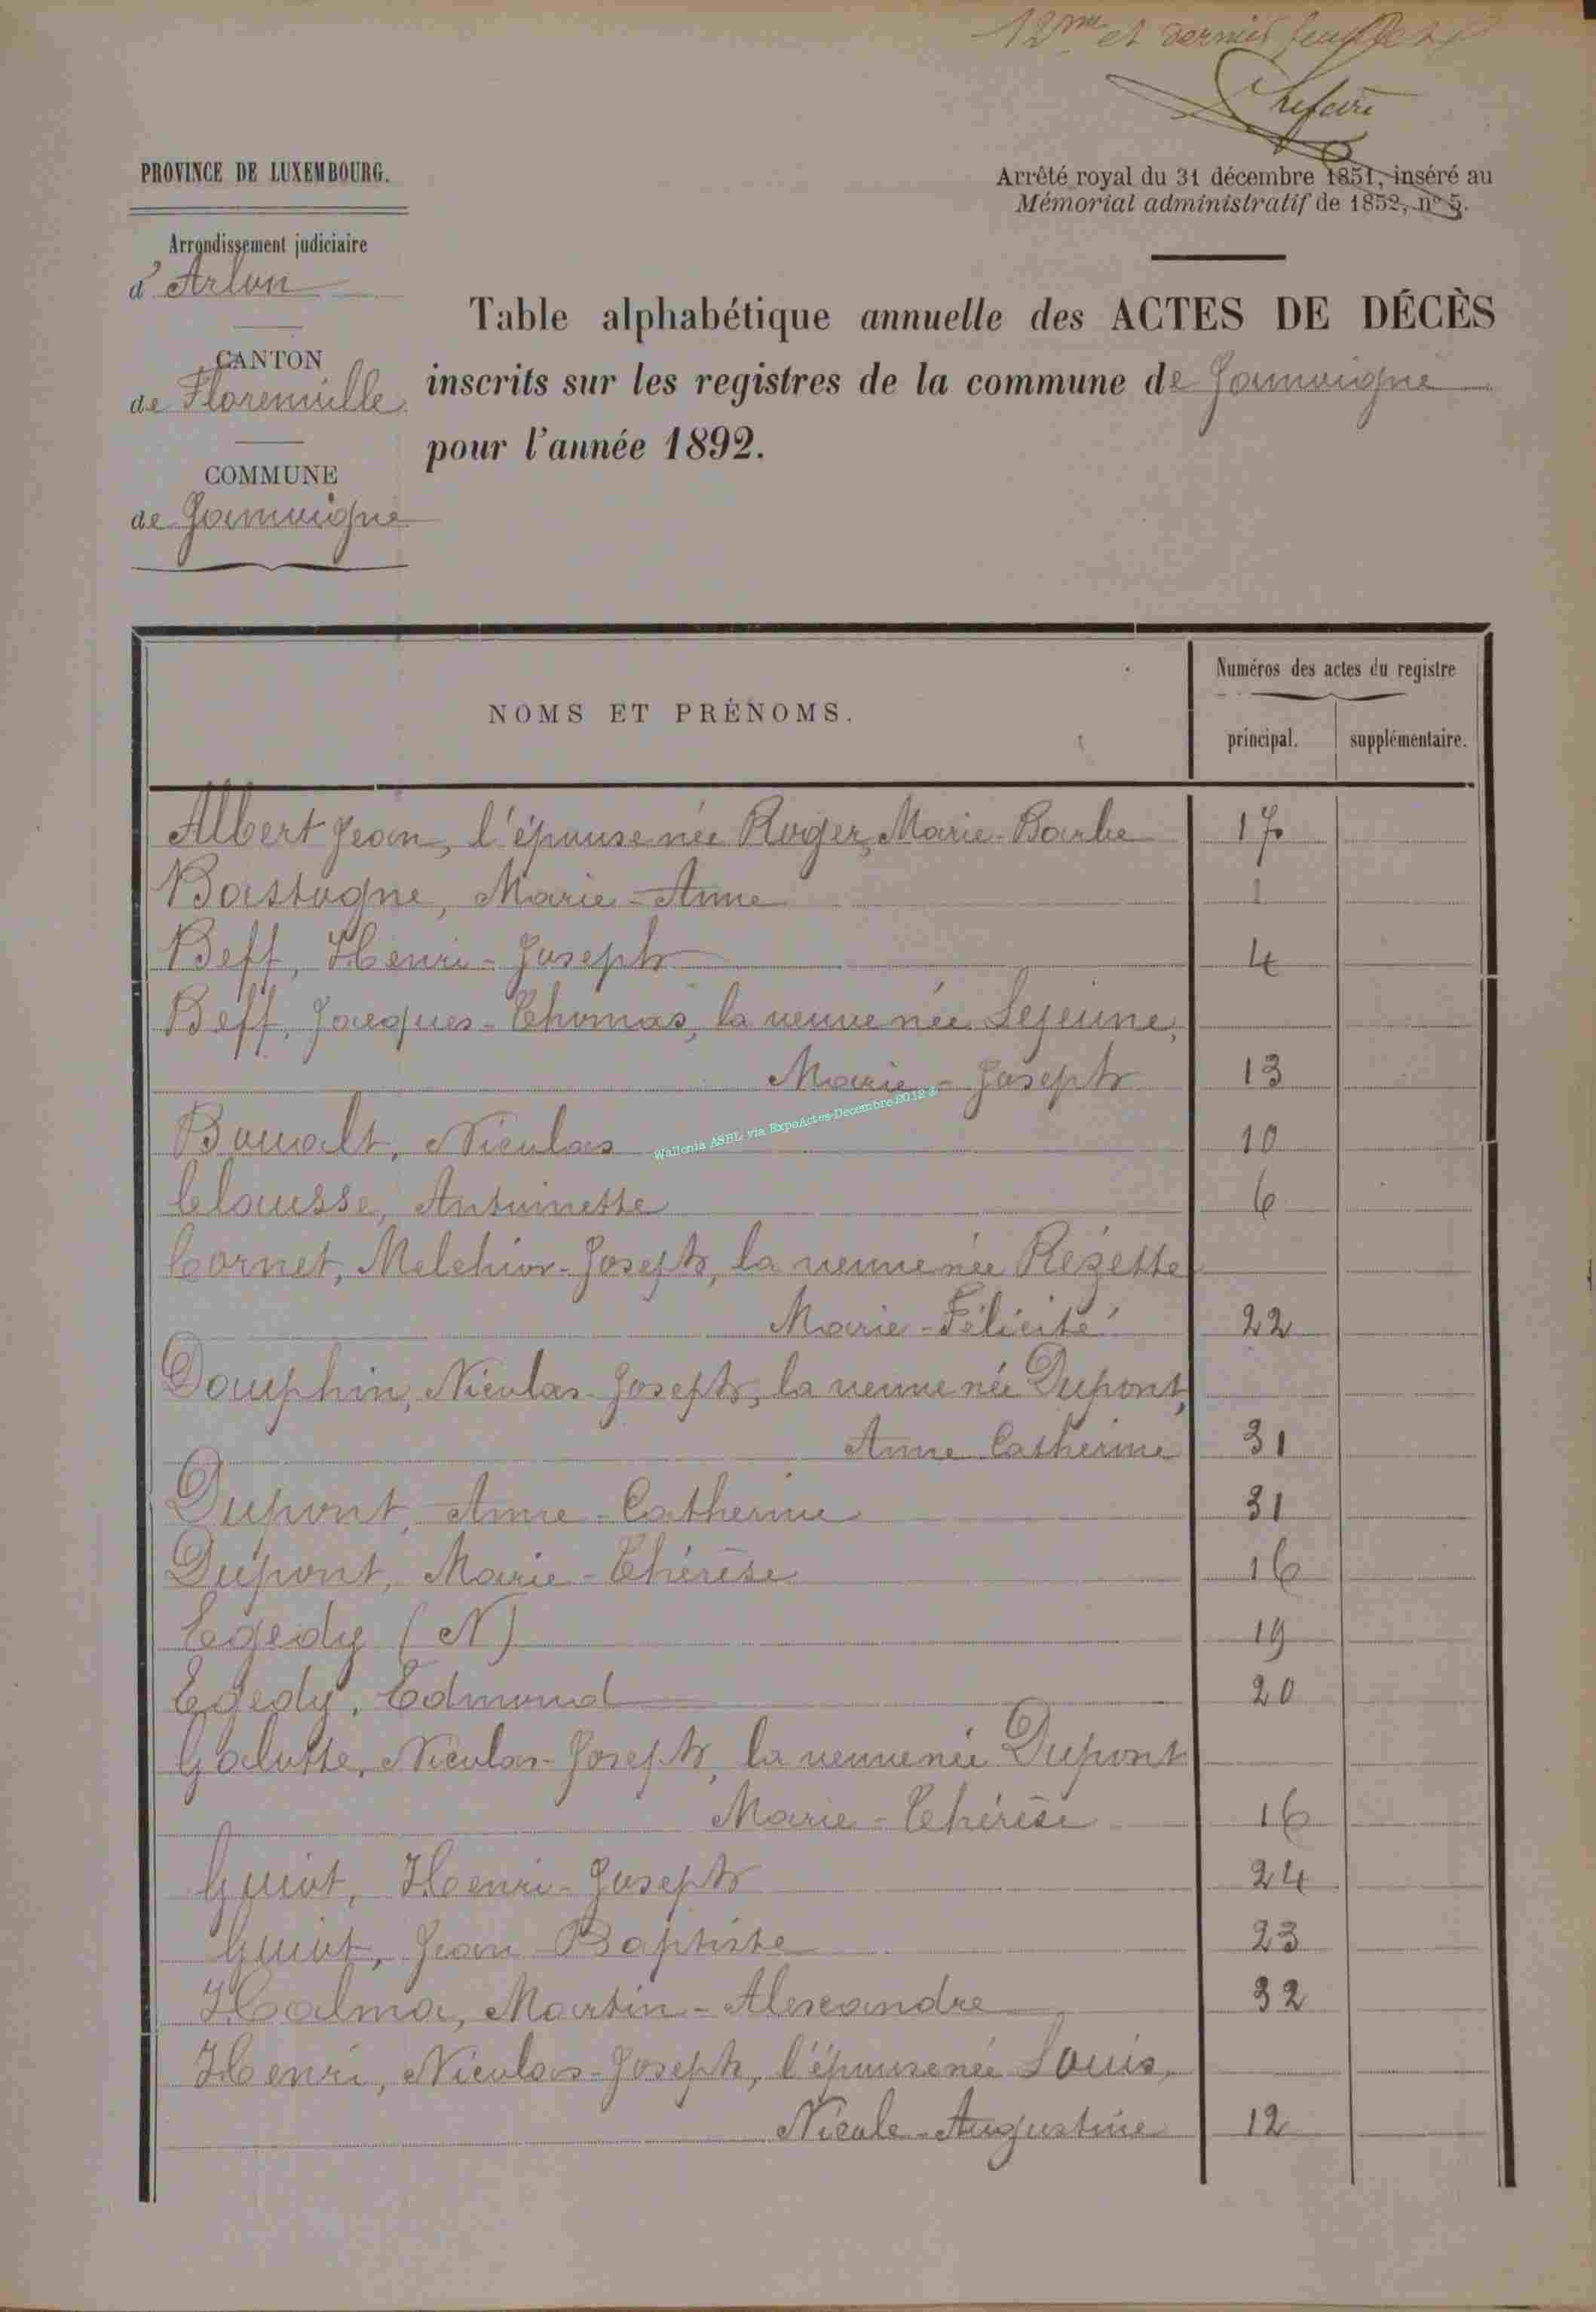 12me et dernier feuillet
PROVINCE DE LUXEMBOURG.
Arrêté royal du 31 décembre 1851, inséré au
Mémorial administratif de 1852, n° 5.
Arrondissement judiciaire
d'Arlon
CANTON
de Florenville
COMMUNE
de Jamoigne
Table alphabétique annuelle des ACTES DE DÉCÈS
inscrits sur les registres de la commune de Jamoigne
pour l'année 1892.
NOMS ET PRÉNOMS.
Numéros des actes du registre
principal. supplémentaire.
Albert Jean, l'épouse née Roger, Marie-Barbe 17
Bastogne, Marie-Anne 1
Beff, Henri-Joseph 4
Beff, Jacques-Thomas, la veuve née Lejeune,
Marie-Joseph 13
Bouvalt, Nicolas 10
Clausse, Antoinette 6
Cornet, Melchior-Joseph, la veuve née Rézette
Marie-Félicité 22
Dauphin, Nicolas-Joseph, la veuve née Dupont,
Anne Catherine 31
Dupont, Anne-Catherine 31
Dupont, Marie-Thérèse 16
Egedy (N) 19
Egedy, Edmond 20
Galotte, Nicolas-Joseph, la veuve née Dupont
Marie-Thérèse 16
Guiot, Henri-Joseph 24
Guiot, Jean-Baptiste 23
Halma, Martin-Alexandre 32
Henri, Nicolas-Joseph, l'épouse née Louis,
Nicole-Augustine 12
Wallonia ASBL via ExpoActes-Decembre 2012